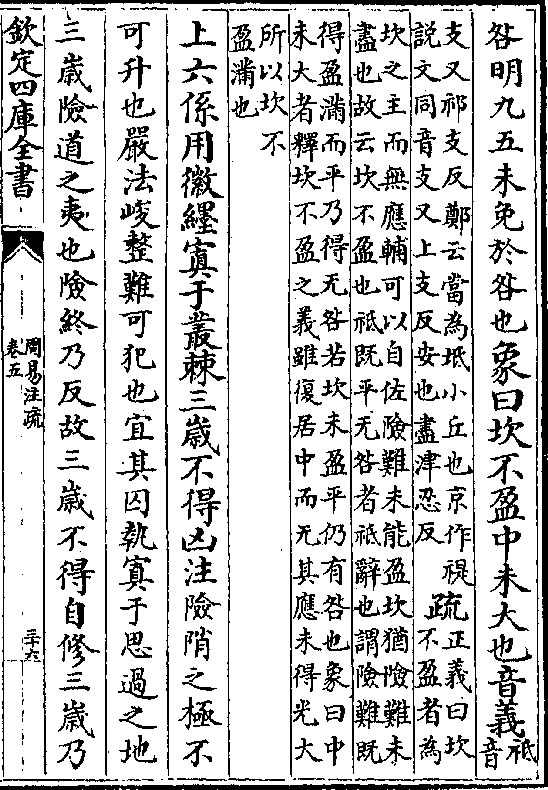 咎明九五未免於咎也象曰坎不盈中未大也音義祗
音
支又祁支反鄭云當為坻小丘也京作禔
説文同音支又上支反安也盡津忍反
疏
正義曰坎
不盈者為
坎之主而無應輔可以自佐險難未能盈坎猶險難未
盡也故云坎不盈也祗既平无咎者祗辭也謂險難既
得盈滿而平乃得无咎若坎未盈平仍有咎也象曰中
未大者釋坎不盈之義雖復居中而无其應未得光大
所以坎不
盈滿也
上六係用徽纆寘于叢棘三歲不得凶注險陗之極不
可升也嚴法峻整難可犯也宜其囚執寘于思過之地
三歲險道之夷也險終乃反故三歲不得自修三歲乃
欽定四庫全書
周易注疏
卷五
三十六